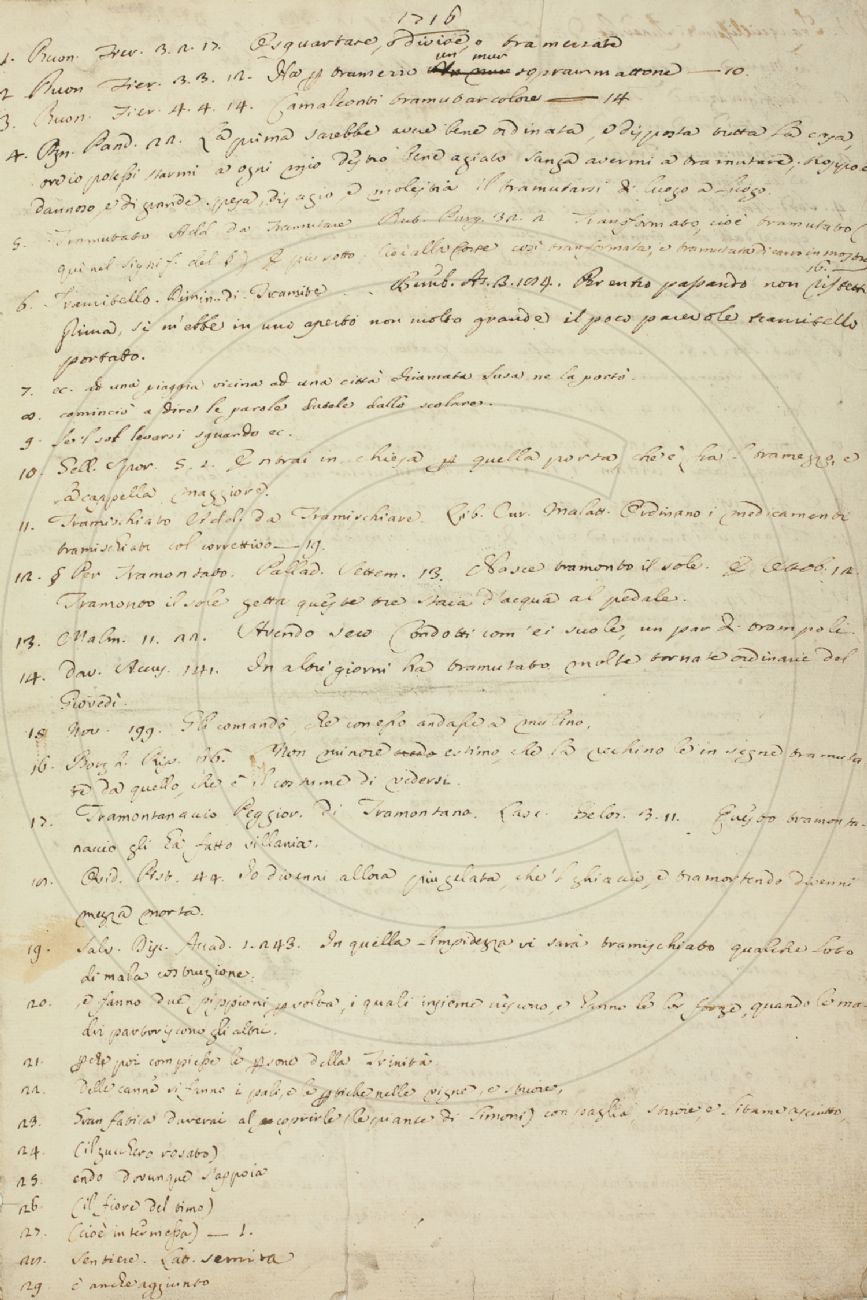 1716
1. Buon. Fier. 3. 2. 17. E squartate, o divise, o tramezzate
2. Buon Fier. 3. 3. 12. Ha p tramezzo un mur sopraunmattone — 10.
3. Buon. Fier. 4. 4. 14. Camaleonti tramutar colore — 14
4. Pan. 22. La prima sarebbe avere bene ordinata, e disposta tutta la casa,
ove io potessi starmi a ogni mio destro bene agiato sanza avermi a tramutare,
dannoso, e di grande spesa, disagio, e molestia il tramutarsi di luogo a luogo.
5. Tramutato Add. da Tramutare But. Purg. 32. 2 Transformato, cioè tramutato (
qui nel signif. del §) E più sotto: così transformata, e tramutata
16.
6. Tramitello. Dimin. di Tramite. Bemb. As. 3. 194. Per entro passando non ristetti
prima, si m'ebbe in uno aperto non molto grande il poco parevole tramitello
portato.
7. ec. ad una piaggia vicina ad una città chiamata Susa ne la portò.
8. cominciò a dire le parole datele dallo scolare.
9. Se 'l sol levarsi sguardo ec.
10. Gell. Spor. 5. 2. Entrai in chiesa p quella porta, che è fra 'l tramezzo, e
la cappella maggiore.
11. Tramischiato Add. da Tramischiare. Lib. Cur. Malatt. Ordinano i medicamenti
tramischiati col correttivo — 19.
12. § Per Tramontato. Pallad. Settem. 13. Nasce tramonto il sole. E Ottob. 12.
Tramonto il sole getta queste tre staia d'acqua al pedale.
13. Malm. 11. 22. Avendo seco condotti com'ei suole, un par di trampoli.
14. Dav. Accus. 141. In altri giorni ha tramutato molte tornate ordinarie del
Giovedì.
15 Nov. 99. Gli comandò, che con esso andasse a mulino.
16. Borgh. Riv. 116. Non minore estimo, che la vechino le insegne tramuta
te da quello, che è il costume di vedersi.
17. Tramontanaccio Peggior. di Tramontano. Lasc. Gelos. 3. 11. Questo tramonta-
naccio gli ha fatto villania.
18. Ovid. Pist. 44. Io divenni allora più gelata, che 'l ghiaccio, e tramortendo divenni
mezza morta.
19. Salv. Disc. Accad. 1. 243. In quella limpidezza vi sarà tramischiato qualche loto
di mala costruzione.
20. e fanno due pippioni p volta, i quali insieme crescono, e hanno le lor forze, quando le ma-
dri partoriscono gli altri.
21. pchè poi compiesse le psone della Trinità.
22. Delle canne si fanno i pali, e le ptiche nelle vigne, e stuoie,
23. Gran fatica durerai al coprirle (le piante di limoni) con paglia, stuoie, e litame asciutto,
24. (il zucchero rosato)
25. endo dovunque s'appoia
26. (il fiore del timo)
27. (cioè intermessa) — 1.
28. Sentiere. Lat. semita
29. è anche aggiunto